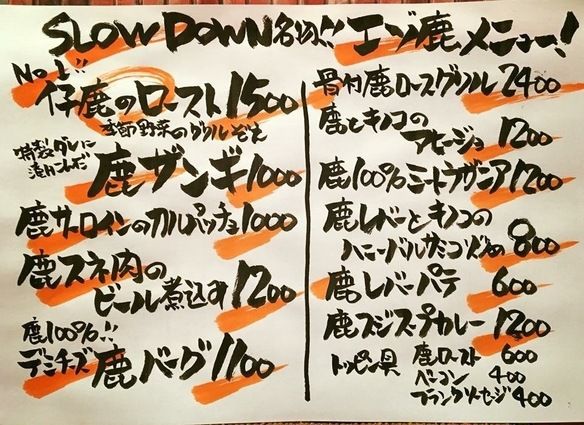 SLOW DOWN名物!! エゾ鹿メニュー!
No1!!
仔鹿のロースト 1500
季節野菜のグリルぞえ
特製ダレに
漬けこんだ
鹿ザンギ 1000
鹿サーロインのカルパッチョ 1000
鹿スネ肉の
ビール煮込す 1200
鹿100%!!
デミチーズ 鹿バーグ 1100
骨付鹿ロースグリル 2400
鹿とキノコの
アヒージョ 1200
鹿100%ミートラザニア 1200
鹿レバーとキノコの
ハニーバルサミコ炒め 800
鹿レバーパテ 600
鹿スジスープカレー 1200
トッピング具 鹿ロースト 600
ベーコン 400
フランクソーセージ 400